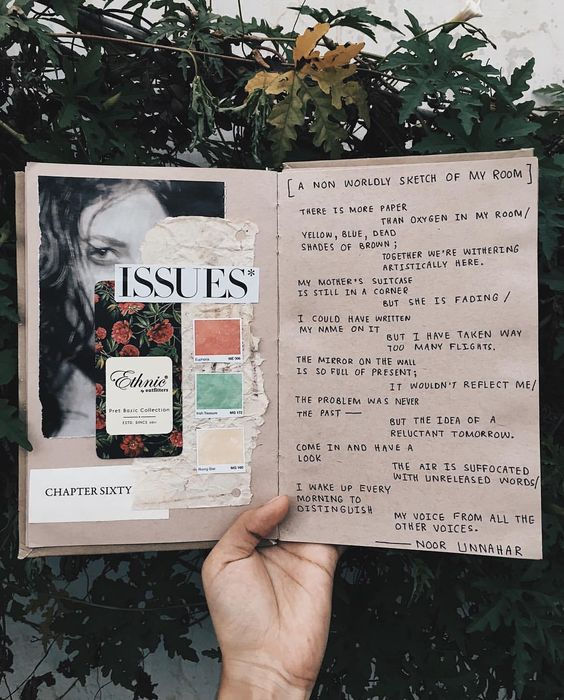 ISSUES*
Euphoria ME 006
Ethnic
by outfitters
Pret Basic Collection
ESTD. SINCE 2001
Irish Treasure MG 172
Rising Star ME 160
CHAPTER SIXTY
[A NON WORLDLY SKETCH OF MY ROOM]
THERE IS MORE PAPER
THAN OXYGEN IN MY ROOM/
YELLOW, BLUE, DEAD
SHADES OF BROWN;
TOGETHER WE'RE WITHERING
ARTISTICALLY HERE.
MY MOTHER'S SUITCASE
IS STILL IN A CORNER
BUT SHE IS FADING/
I COULD HAVE WRITTEN
MY NAME ON IT
BUT I HAVE TAKEN WAY
TOO MANY FLIGHTS.
THE MIRROR ON THE WALL
IS SO FULL OF PRESENT;
IT WOULDN'T REFLECT ME/
THE PROBLEM WAS NEVER
THE PAST —
BUT THE IDEA OF A
RELUCTANT TOMORROW.
COME IN AND HAVE A
LOOK
THE AIR IS SUFFOCATED
WITH UNRELEASED WORDS/
I WAKE UP EVERY
MORNING TO
DISTINGUISH
MY VOICE FROM ALL THE
OTHER VOICES.
— NOOR UNNAHAR